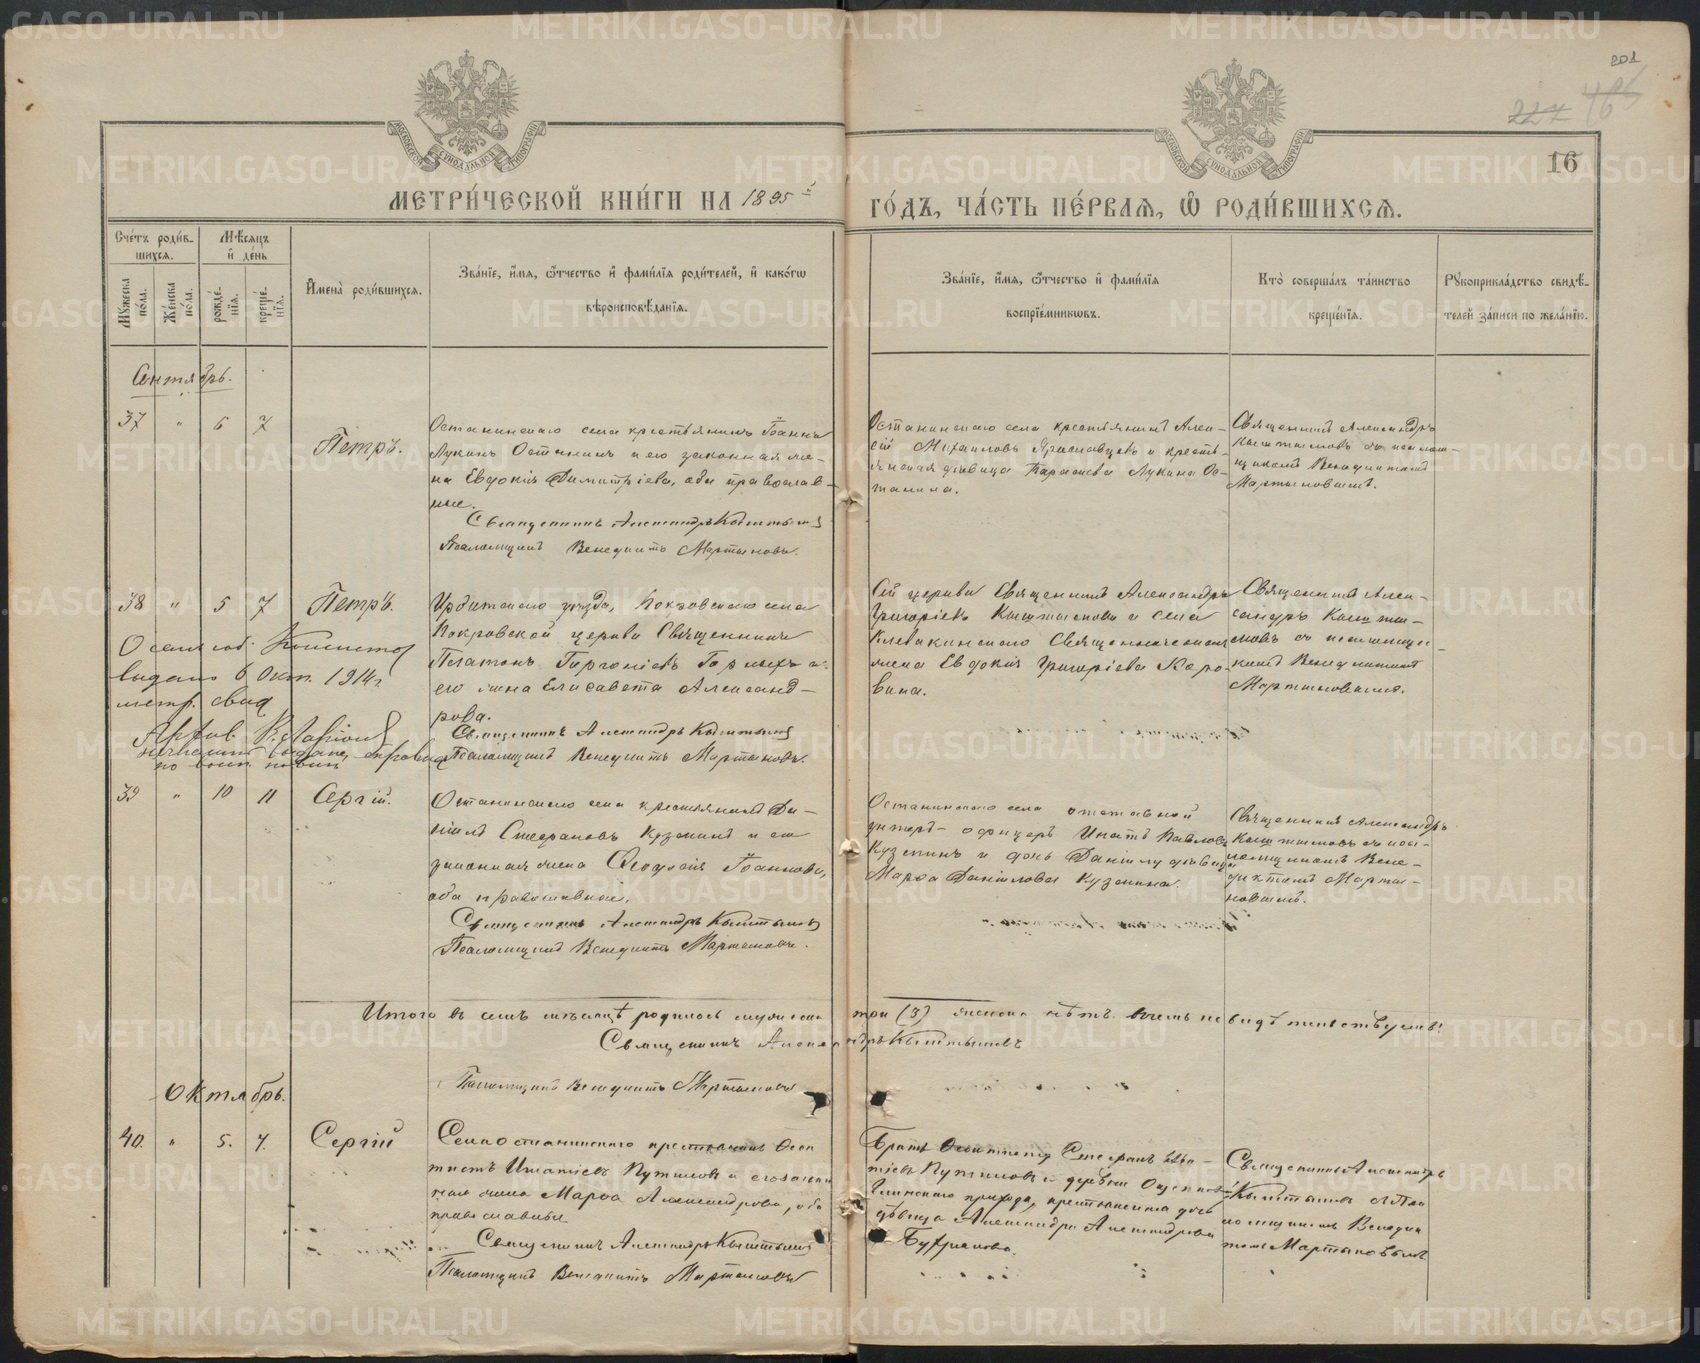 201
227
16
МЕТРИ́ЧЕСКОЙ КНИ́ГИ НА 1895 й
ГО́ДЪ, ЧА́СТЬ ПЕ́РВАѦ, Ѡ҆ РОДИ́ВШИХСѦ.
Сче́тъ роди́в-
шихсѧ.
Мѣ́сѧцъ
и҆ де́нь
Мꙋ́жеска
по́ла.
Же́нска
по́ла.
рожде́-
нїѧ.
креще́-
нїѧ.
И҆мена̀ роди́вшихсѧ.
Зва́нїе, и҆́мѧ, ѻ҆́тчество и҆ фами́лїѧ роди́телей, и҆ како́гѡ
вѣроисповѣ́данїѧ.
Зва́нїе, и҆́мѧ, ѻ҆́тчество и҆ фами́лїѧ
воспрїе́мникѡвъ.
Кто̀ соверша́лъ та́инство
креще́нїѧ.
Рꙋкоприкла́дство свидѣ́-
телей за́писи по жела́нїю.
Сентябрь.
37 " 6 7
Петръ.
Останинскаго села крестьянинъ Іоаннъ
Лукинъ Останинъ и его законная же-
на Евдокія Димитріева, оба православ-
ные.
Священникъ Александръ Кыштымовъ
Псаломщикъ Венедиктъ Мартыновъ.
Останинскаго села крестьянинъ Алек-
сій Михаиловъ Ярославцевъ и кресть-
янская дѣвица Параскева Лукина Ос-
танина.
Священникъ Александръ
Кыштымовъ съ псалом-
щикомъ Венедиктомъ
Мартыновымъ.
38 " 5 7
Петръ.
Ирбитскаго уѣзда, Покровскаго села
Покровской церкви Священникъ
Платонъ Горгоніевъ Горныхъ и
его жена Елисавета Александ-
рова.
Священникъ Александръ Кыштымовъ
Псаломщикъ Венедиктъ Мартыновъ.
Сей церкви Священникъ Александръ
Григоріевъ Кыштымовъ и села
Клевакинскаго Священническая
жена Евдокія Григоріева Каро-
вина.
Священникъ Алек-
сандръ Кышты-
мовъ съ псаломщи-
комъ Венедиктомъ
Мартыновымъ.
выдано 6 Окт. 1914 г
метр. свид
39 " 10 11
Сергій.
Останинскаго села крестьянинъ Да-
ніилъ Стефановъ Куземинъ и его
законная жена Ѳеодосія Іоаннова,
оба православные.
Священникъ Александръ Кыштымовъ
Псаломщикъ Венедиктъ Мартыновъ.
Останинскаго села отставной
унтеръ-офицеръ Ипатъ Павловъ
Куземинъ и дочь Даніилу дѣвица
Марѳа Даніилова Кузьмина.
Священникъ Александръ
Кыштымовъ съ пса-
ломщикомъ Вене-
диктомъ Марты-
новымъ.
Итого въ семъ мѣсяцѣ родилось мужеска три (3) женска нѣтъ въ чемъ и свидѣтельствуемъ:
Священникъ Александръ Кыштымовъ
Псаломщикъ Венедиктъ Мартыновъ
Октябрь.
40. " 5. 7.
Сергій
Села Останинскаго крестьянинъ Ѳеок-
тистъ Игнатіевъ Путиловъ и его закон-
ная жена Марѳа Александрова, оба
православные
Священникъ Александръ Кыштымовъ
Псаломщикъ Венедиктъ Мартыновъ
Братъ Ѳеоктисту Стефанъ Игна-
тіевъ Путиловъ и деревни
Глинскаго прихода, крестьянина дочь
дѣвица Александра Александрова
Священникъ Александръ
Кыштымовъ съ Пса-
ломщикомъ Венедик-
томъ Мартыновымъ
METRIKI.GASO-URAL.RU